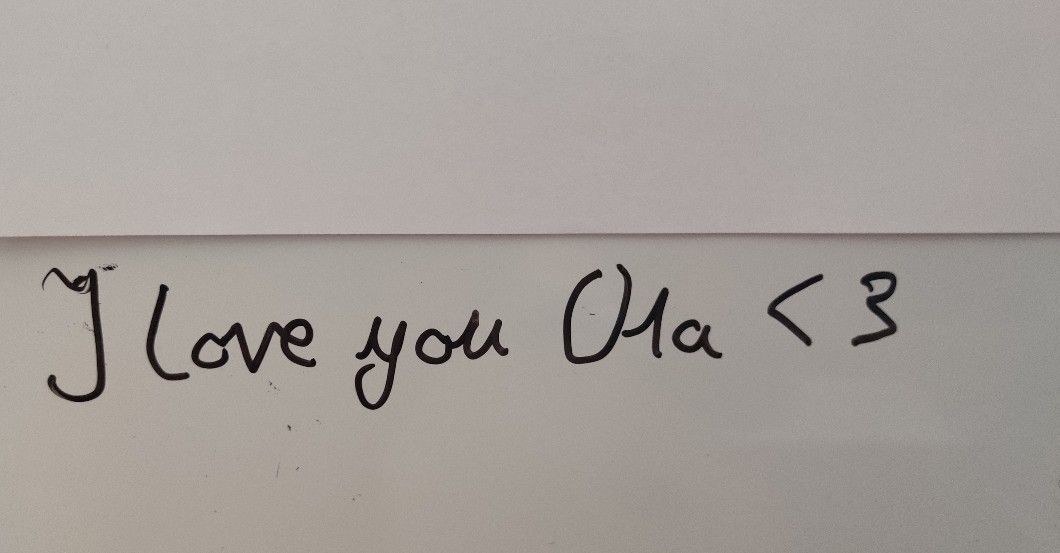 I love you Ola <3